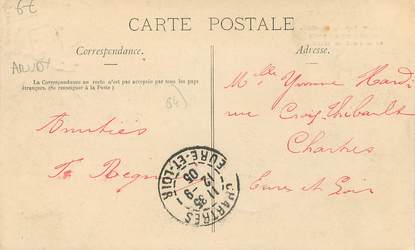 6€
CARTE POSTALE
Correspondance.
Adresse.
ARUDY
La Correspondance au recto n'est pas acceptée par tous les pays
étrangers. (Se renseigner à la Poste)
64
Amitiés
Melle Yvonne Hardi
rue Croix Thibault
Chartres
Eure et Loir
CHARTRES
11 35
12 -9
05
EURE-ET-LOIR